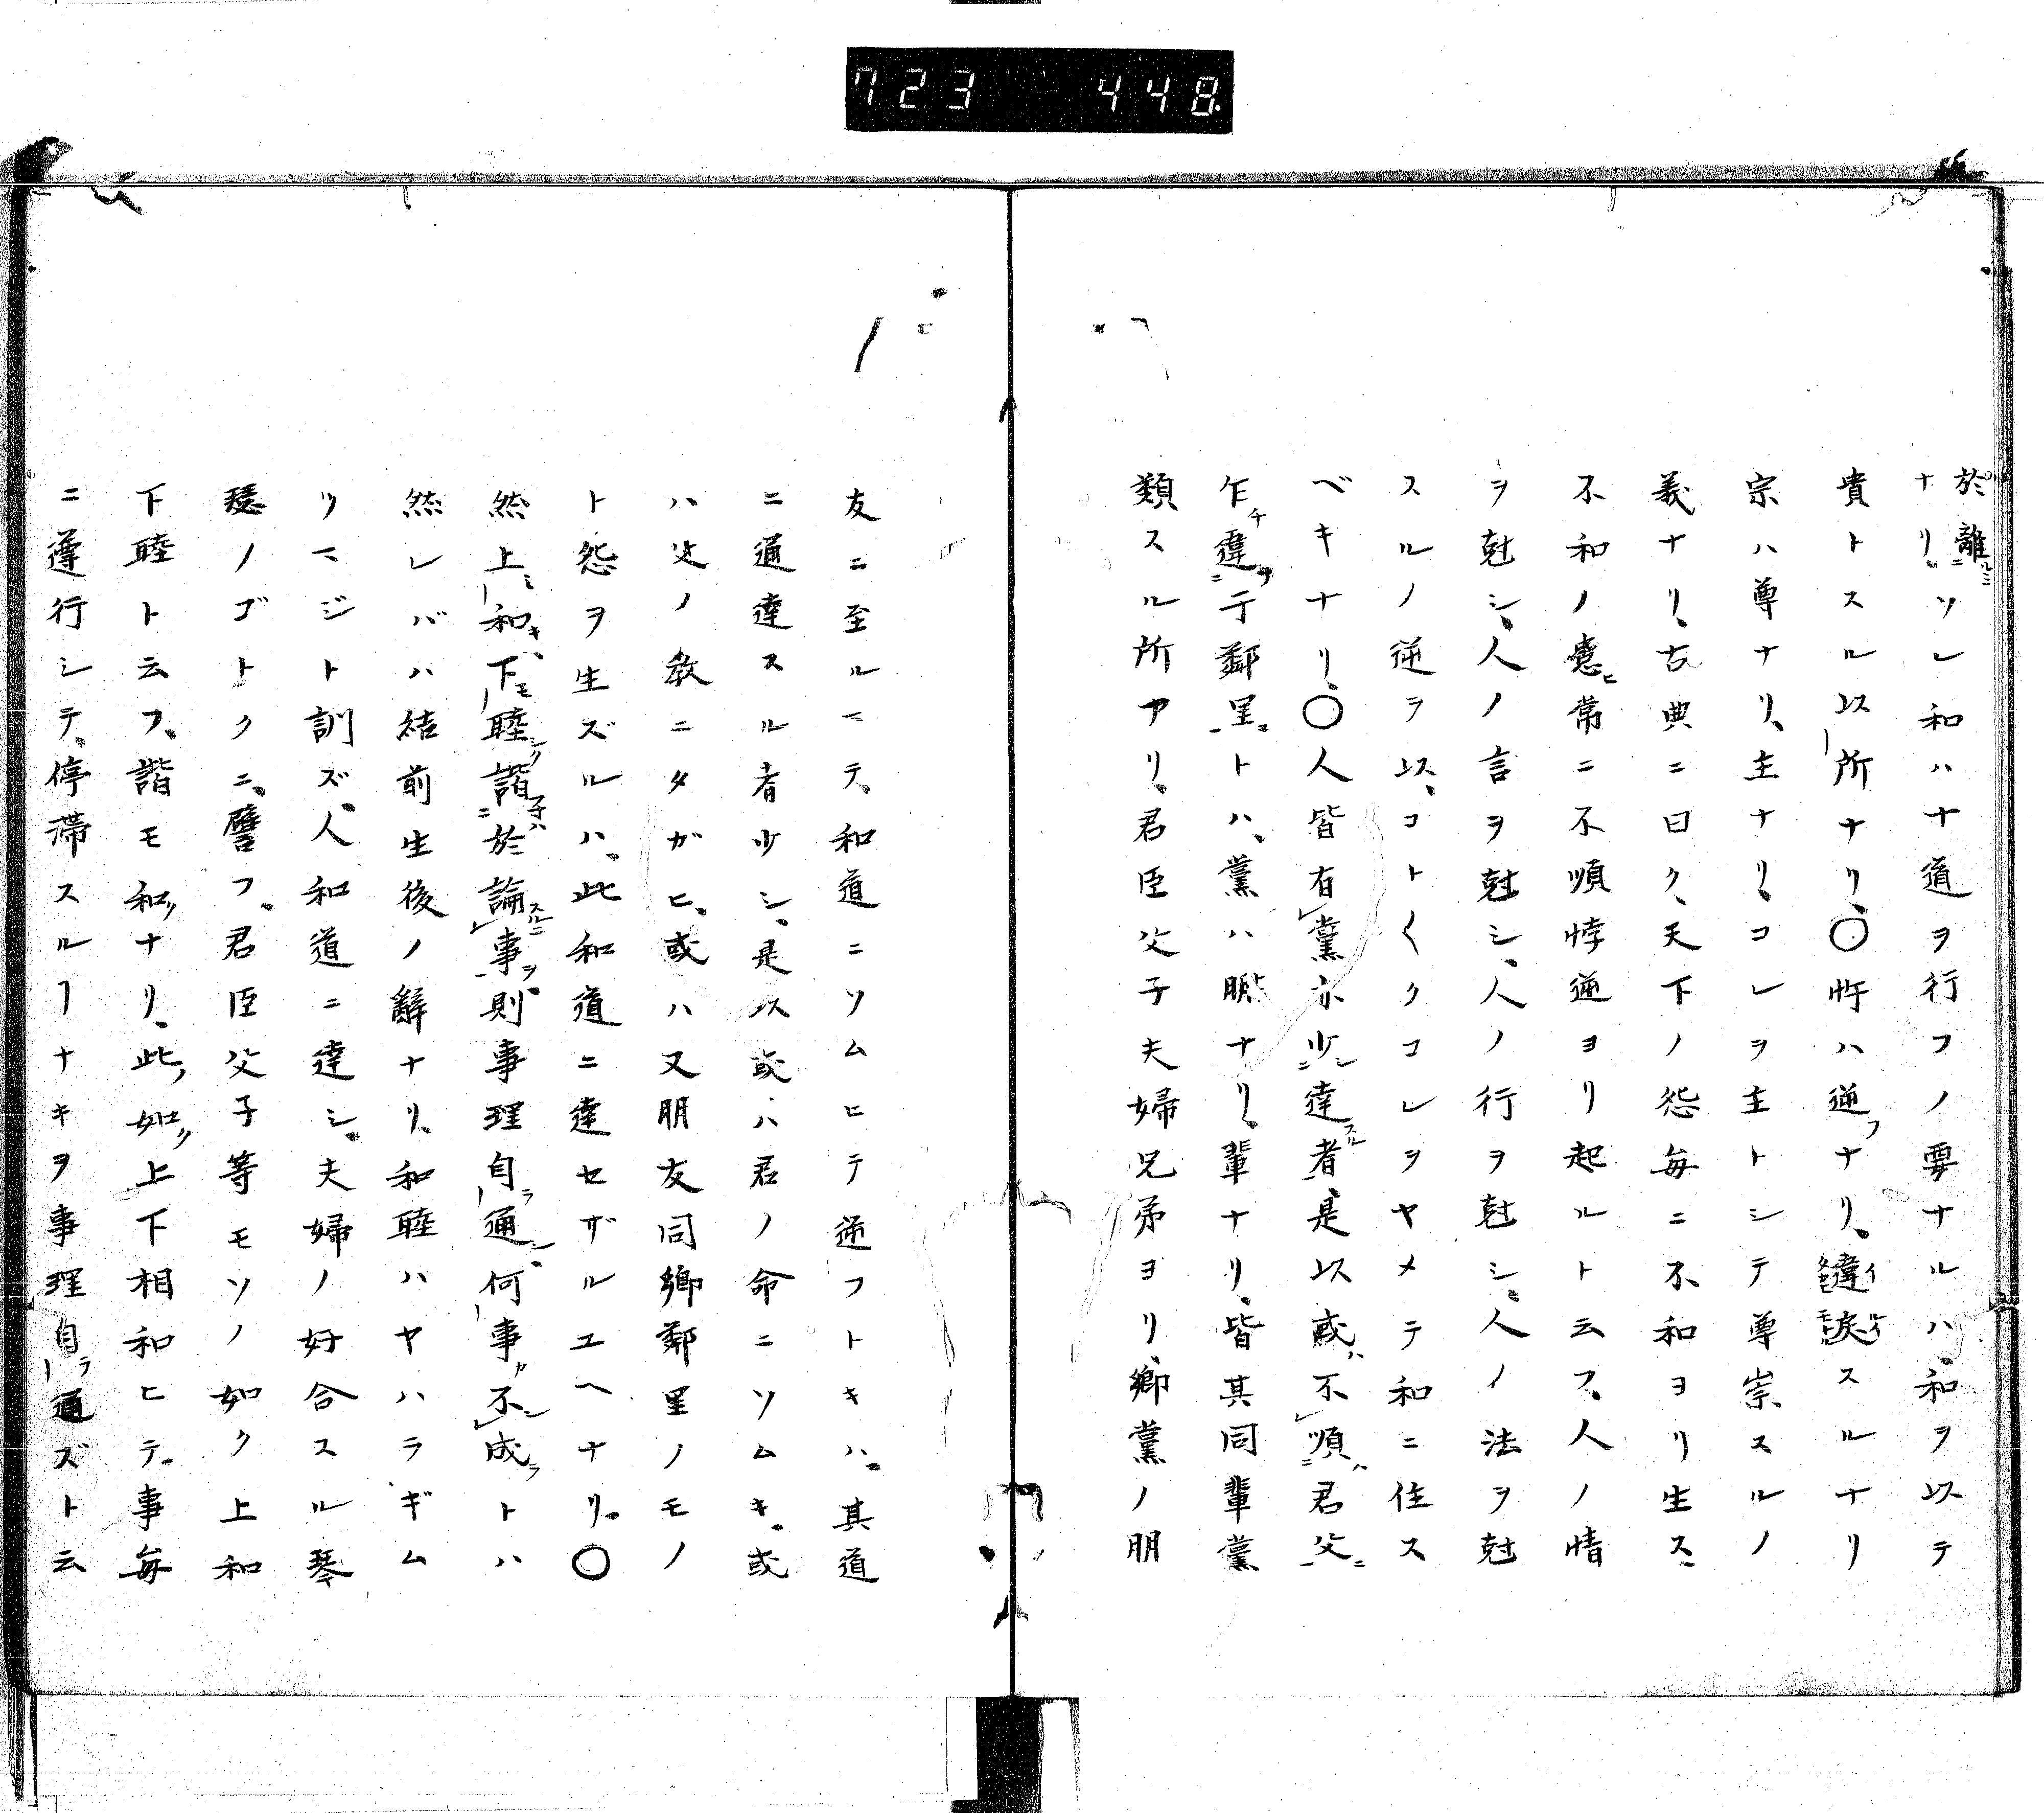 723 448
於離ルニ
ナリ、ソレ和ハ十道ヲ行フノ要ナルハ、和ヲ以テ
貴トスル以所ナリ、〇忤ハ逆フナリ、違戻スルナリ
宗ハ尊ナリ、主ナリ、コレヲ主トシテ尊崇スルノ
義ナリ、古典ニ曰ク、天下ノ怨毎ニ不和ヨリ生ズ
不和ノ患ヒ常ニ不順悖逆ヨリ起ルト云フ、人ノ情
ヲ尅シ、人ノ言ヲ尅シ、人ノ行ヲ尅シ、人ノ法ヲ尅
スルノ逆ヲ以、コト〱クコレヲヤメテ和ニ住ス
ベキナリ、〇人皆有黨亦少達スル者、是以或ハ不順ハ君父ニ
乍チ違フテ于鄰里ニトハ、黨ハ朋ナリ、輩ナリ、皆其同輩黨
類スル所アリ、君臣父子夫婦兄弟ヨリ、鄉黨ノ朋
友ニ至ルマテ、和道ニソムヒテ逆フトキハ、其道
ニ通達スル者少シ、是以或ハ君ノ命ニソムキ、或
ハ父ノ教ニタガヒ、或ハ又朋友同鄉鄰里ノモノ
ト怨ヲ生ズルハ、此和道ニ達セザルユヘナリ、〇
然上ミ和キ、下モ睦シク諧於論スルニ事ヲ、則事理自ラ通シ、何事カ不成ラトハ
然レバハ結前生後ノ辭ナリ、和睦ハヤハラギム
リマジト訓ズ、人和道ニ達シ、夫婦ノ好合スル琴
瑟ノゴトクニ、譬フ、君臣父子等モソノ如ク上和
下睦ト云フ、諧モ和ナリ、此ノ如ク上下相和ヒテ、事毎
ニ遵行シテ、停滯スルヿナキヲ事理自ラ通ズト云